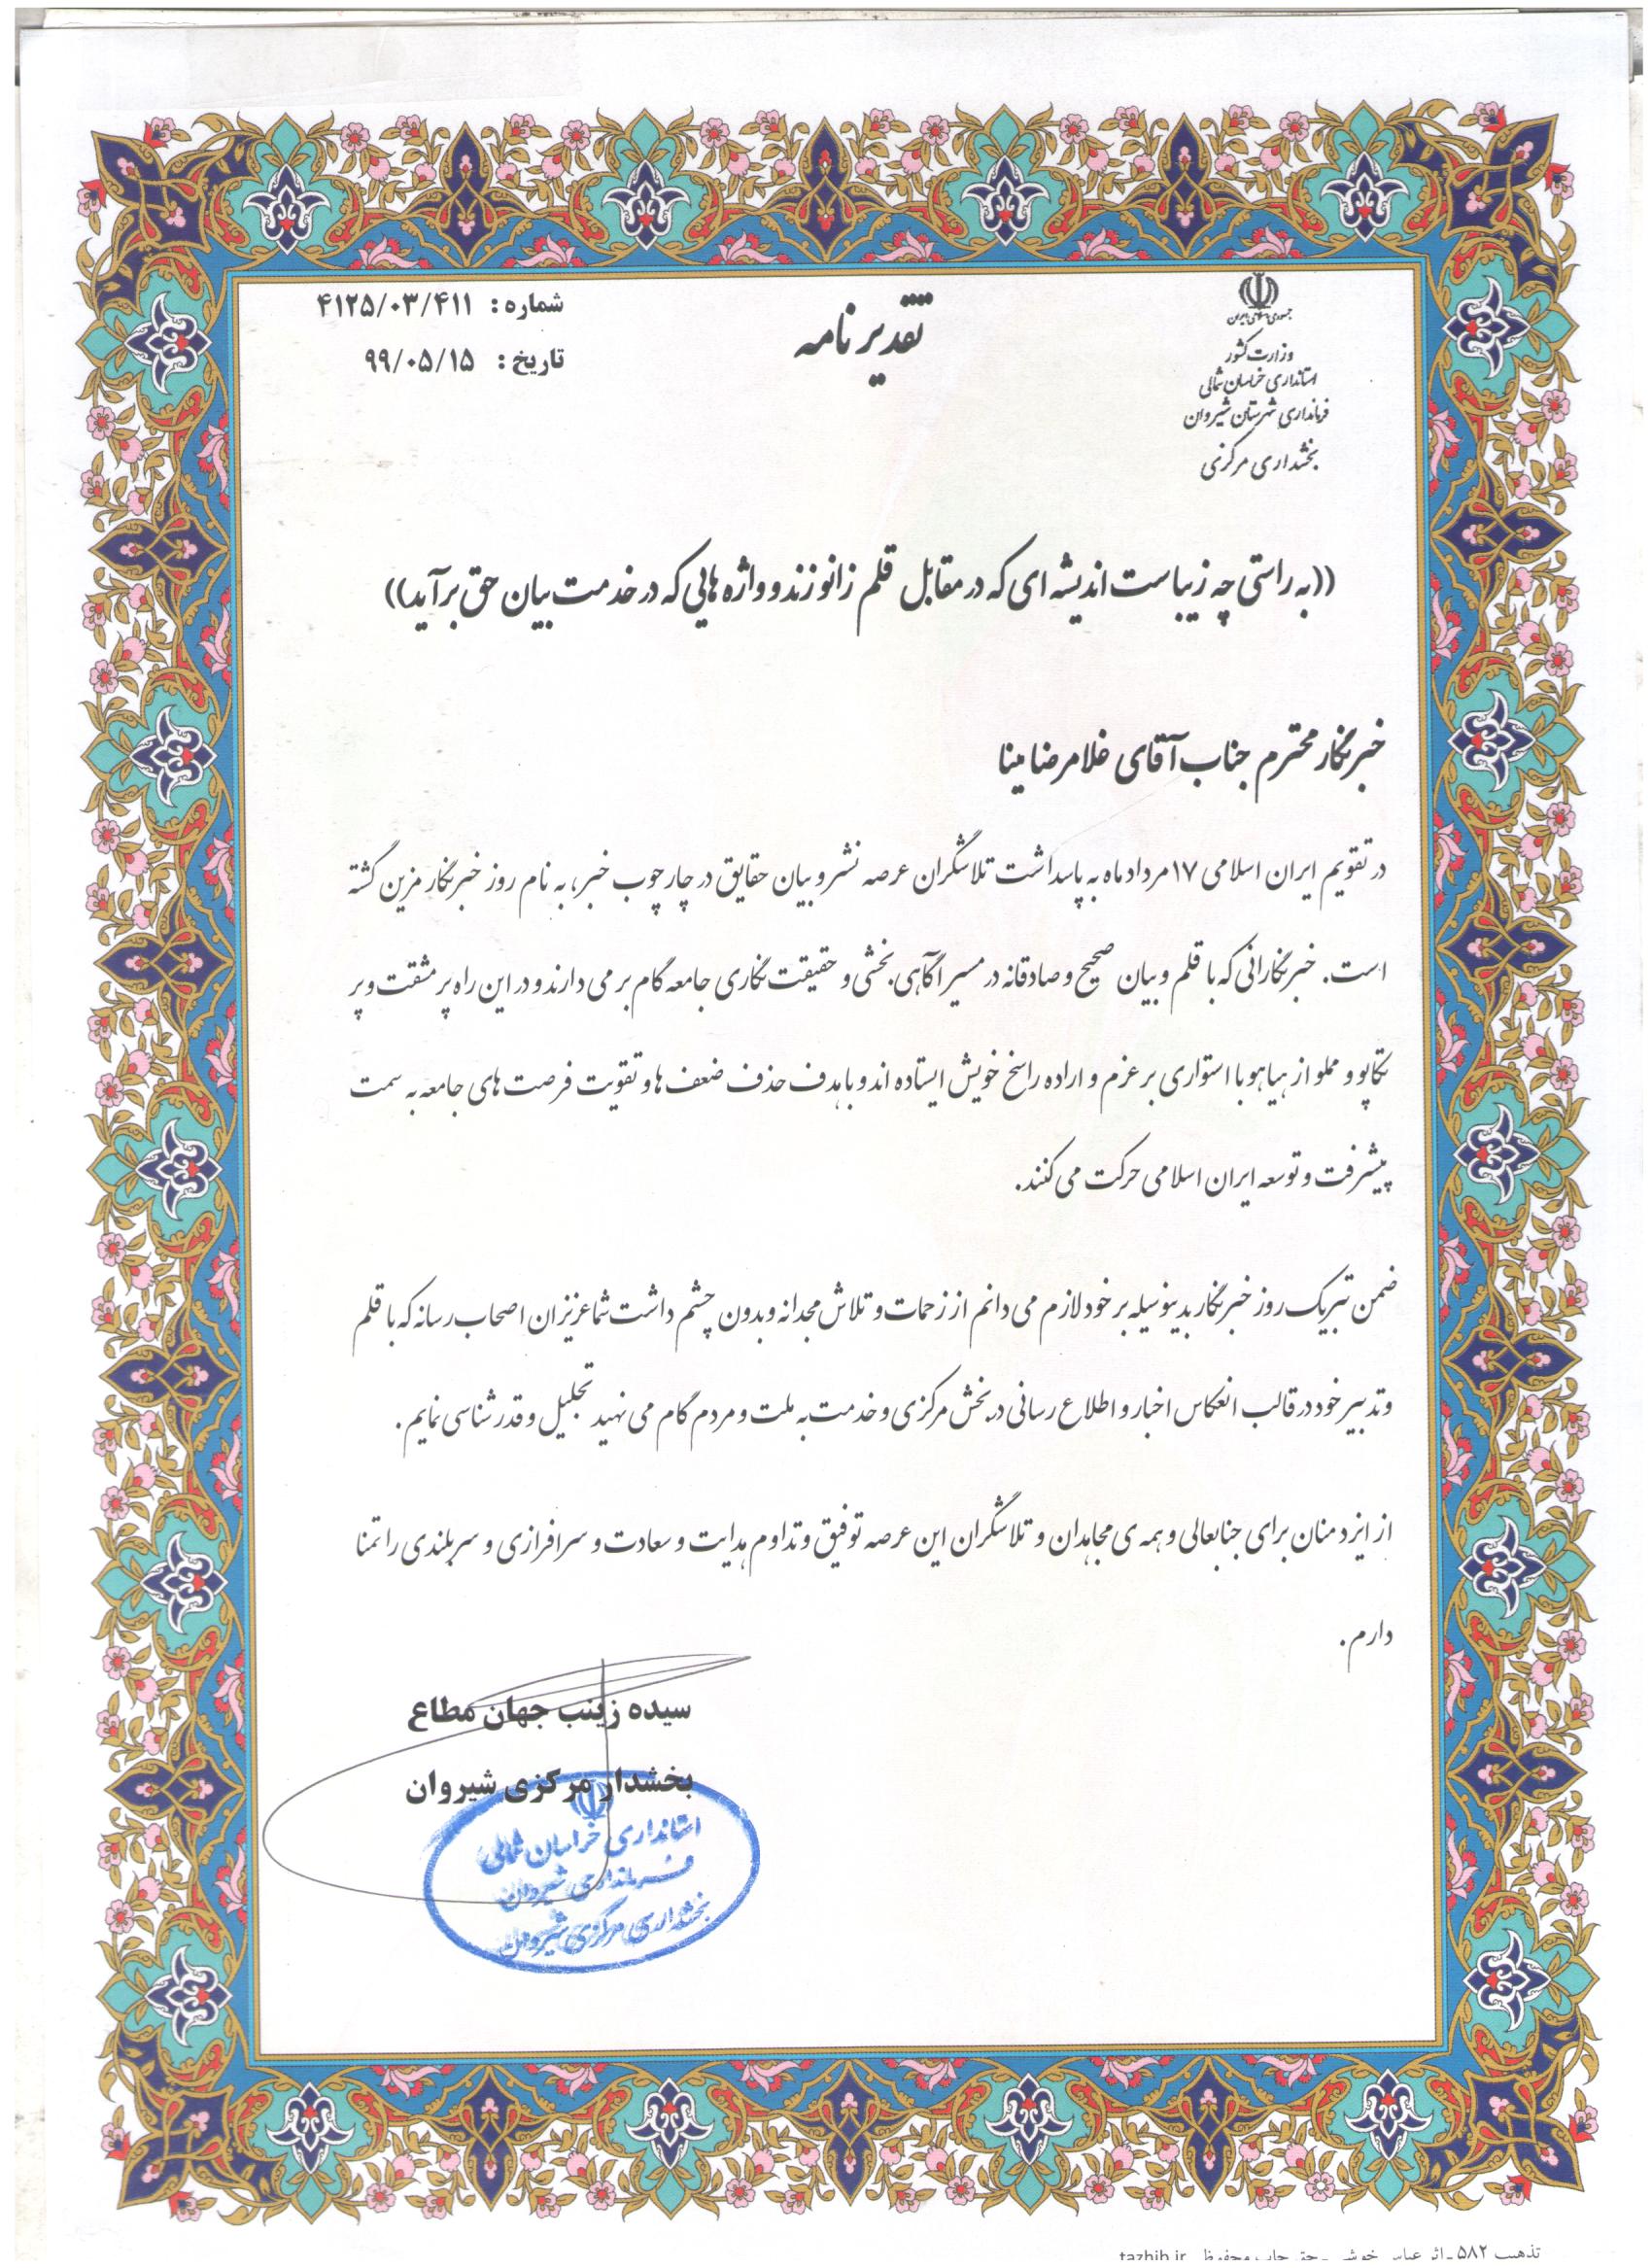 جمهوری اسلامی ایران
وزارت کشور
استانداری خراسان شمالی
فرمانداری شهرستان شیروان
بخشداری مرکزی
تقدیر نامه
شماره : ۴۱۲۵/۰۳/۴۱۱
تاریخ : ۹۹/۰۵/۱۵
((به راستی چه زیباست اندیشه ای که در مقابل قلم زانو زند و واژه هایی که در خدمت بیان حق برآید))
خبرنگار محترم جناب آقای غلامرضا مینا
در تقویم ایران اسلامی ۱۷ مرداد ماه به پاسداشت تلاشگران عرصه نشر و بیان حقایق در چارچوب خبر، به نام روز خبرنگار مزین گشته
است. خبرنگارانی که با قلم و بیان صحیح و صادقانه در مسیر آگاهی بخشی و حقیقت نگاری جامعه گام بر می دارند و در این راه پر مشقت و پر
تکاپو و مملو از هیاهو با استواری بر عزم و اراده راسخ خویش ایستاده اند و با هدف حذف ضعف ها و تقویت فرصت های جامعه به سمت
پیشرفت و توسعه ایران اسلامی حرکت می کنند.
ضمن تبریک روز خبرنگار بدینوسیله بر خود لازم می دانم از زحمات و تلاش مجدانه و بدون چشم داشت شما عزیزان اصحاب رسانه که با قلم
و تدبیر خود در قالب انعکاس اخبار و اطلاع رسانی در بخش مرکزی و خدمت به ملت و مردم گام می نهید تجلیل و قدرشناسی نمایم.
از ایزد منان برای جنابعالی و همه ی مجاهدان و تلاشگران این عرصه توفیق و تداوم هدایت و سعادت و سرافرازی و سربلندی را تمنا
دارم.
سیده زینب جهان مطاع
بخشدار مرکزی شیروان
استانداری خراسان شمالی
فرمانداری شیروان
بخشداری مرکزی شیروان
تذهیب ۵۸۲ - اثر عباس - حق چاپ محفوظ tazhib.ir